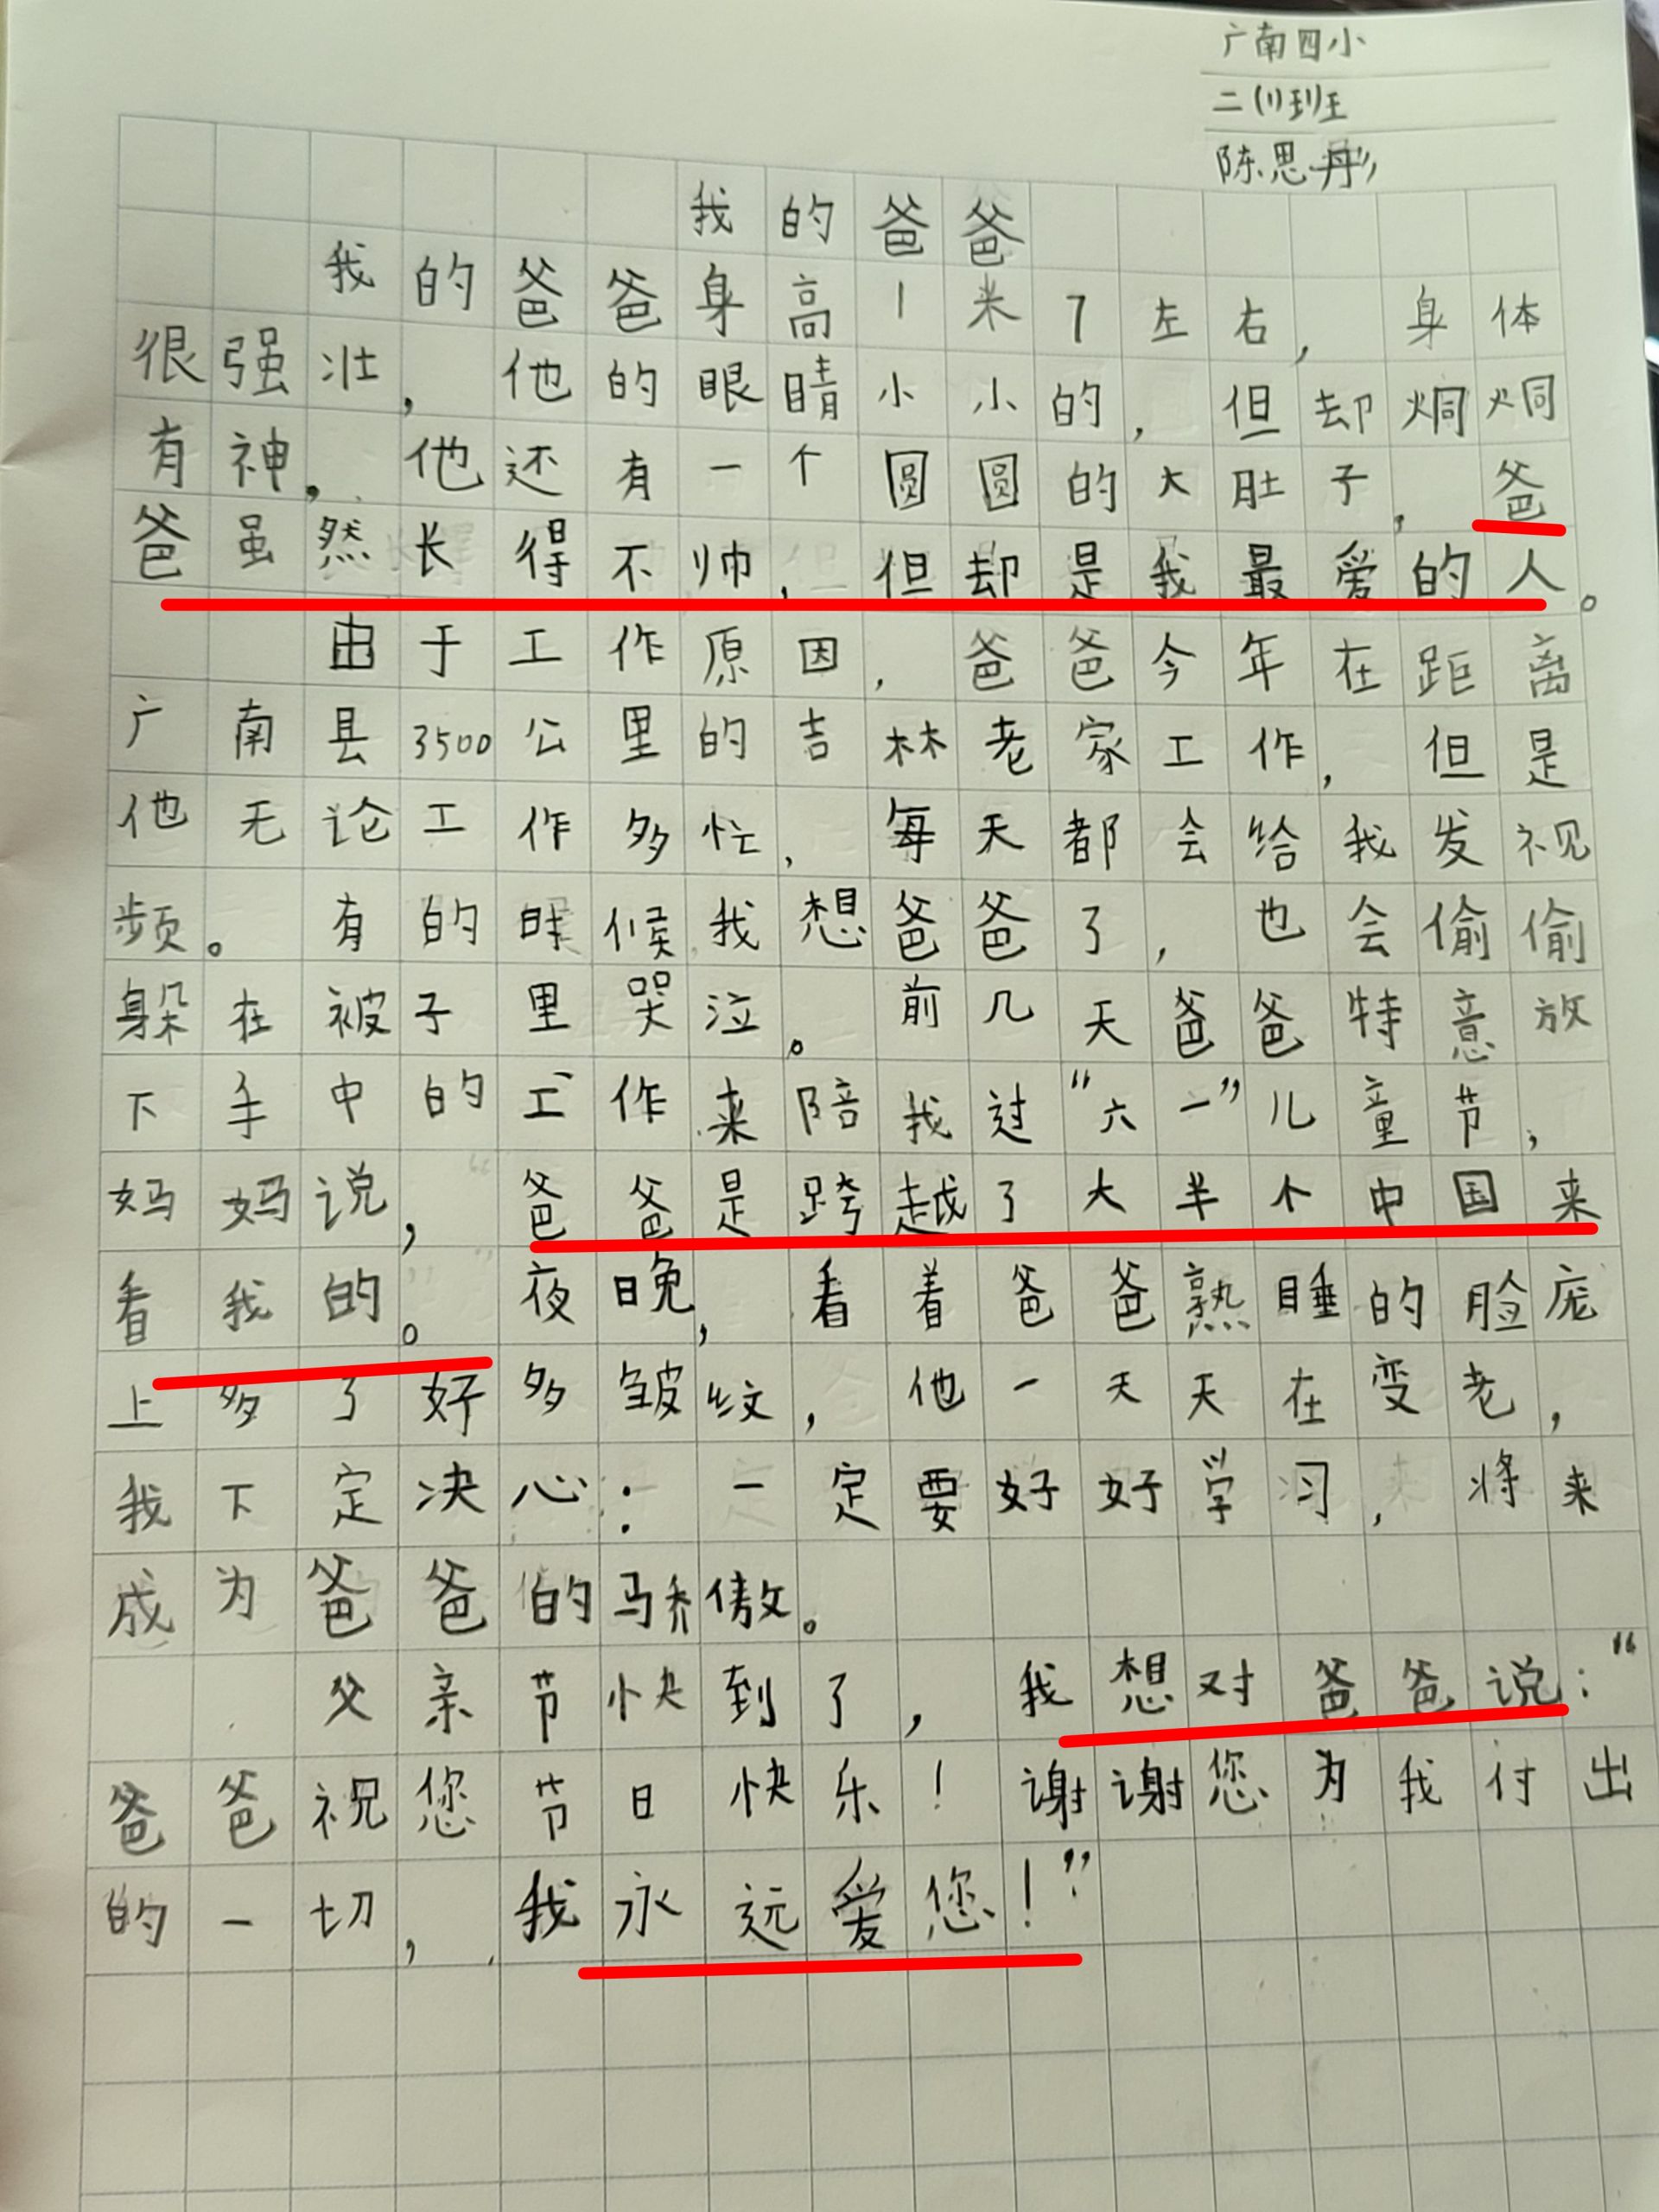 广南四小
二(1)班
陈思彤
我的爸爸
我的爸爸身高1米7左右,身体
很强壮,他的眼睛小小的,但却炯炯
有神。他还有一个圆圆的大肚子,爸
爸虽然长得不帅,但却是我最爱的人。
由于工作原因,爸爸今年在距离
广南县3500公里的吉林老家工作,但是
他无论工作多忙,每天都会给我发视
频。有的时候我想爸爸了,也会偷偷
躲在被子里哭泣。前几天爸爸特意放
下手中的工作来陪我过“六一”儿童节,
妈妈说,爸爸是跨越了大半个中国来
看我的。夜晚,看着爸爸熟睡的脸庞
上多了好多皱纹,他一天天在变老,
我下定决心:一定要好好学习,将来
成为爸爸的骄傲。
父亲节快到了,我想对爸爸说:“
爸爸祝您节日快乐!谢谢您为我付出
的一切,我永远爱您!”